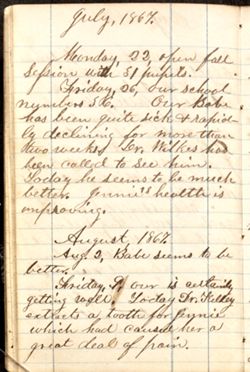 July, 1867.
Monday, 22, open fall
Session with 51 pupils.
Friday, 26, our school
numbers 56. Our Babe
has been quite sick & rapid-
ly declining for more than
two weeks. Dr. Wilkes has
been called to see him.
Today he seems to be much
better. Jennie's health is
improving.
August, 1867
Aug. 3, Babe seems to be
better.
Friday, 9, our is certainly
getting well. Today Dr. Kelley
extracts a tooth for Jennie
which had caused her a
great deal of pain.